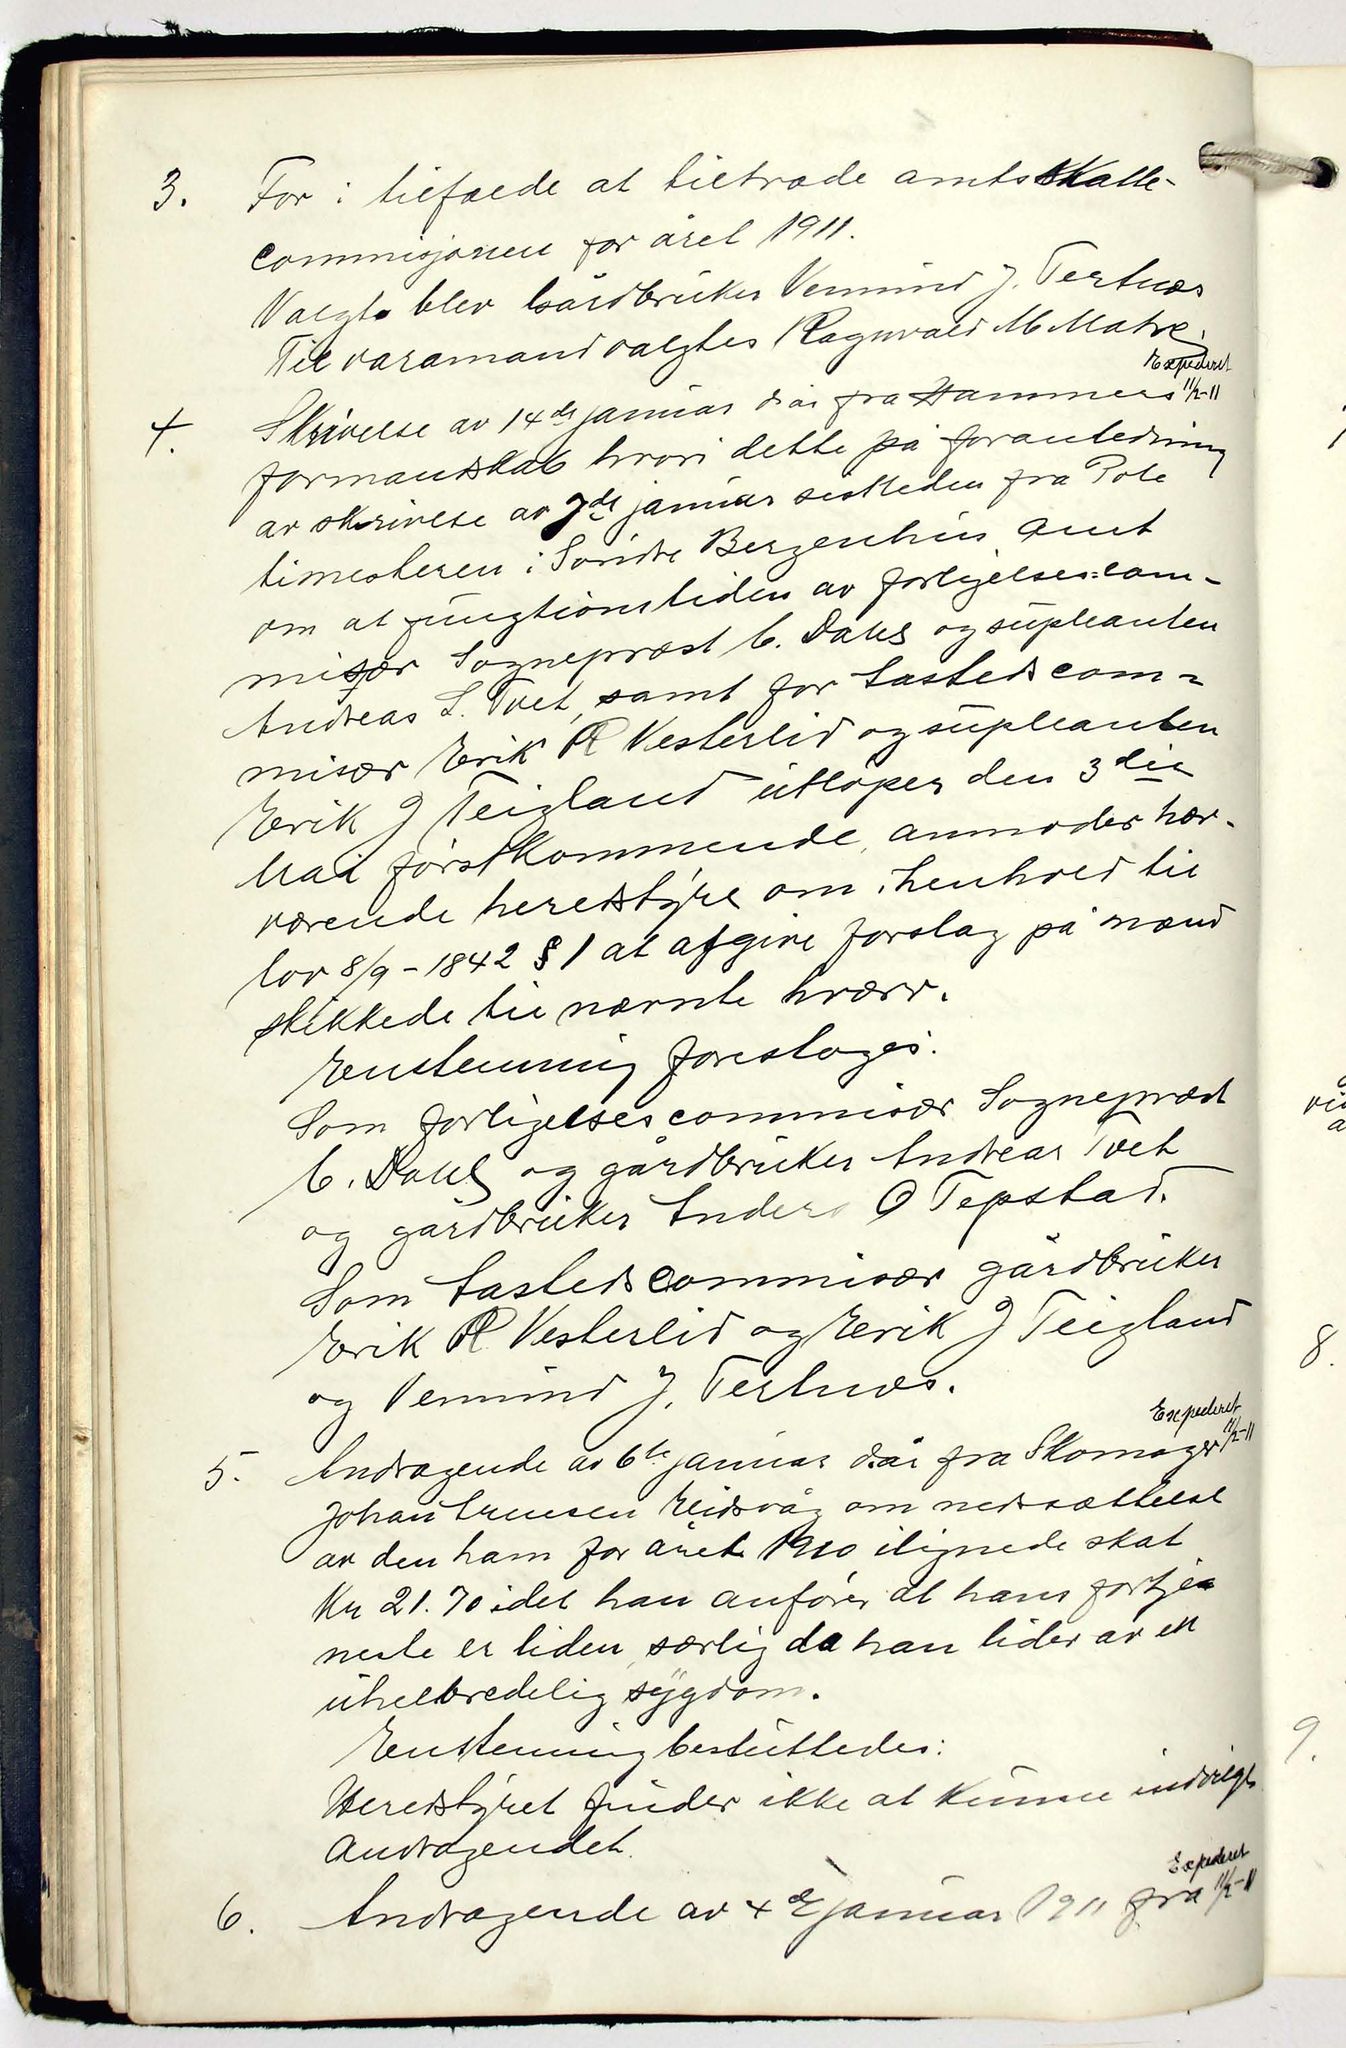 3. For i tilfælde at tiltræde amtsskatte-
commisjonen for året 1911.
Valgt blev Gårdbruker Vemund J. Tertnæs
Til varamand valgtes Ragnvald M Matre.
Expederet
11/2-11
4. Skrivelse av 14de januar d.år fra Hammers
formandskab hvori dette på foranledning
av skrivelse av 7de januar sistleden fra Pole
timesteren i Söndre Bergenhus amt
om at fungtionstiden av forligelses=com-
misær Sogneprest C. Dahl og supleanten
Andreas L. Tvet, samt for Tastedscom=
misær Erik R Vesterlid og supleanten
Erik J Teigland utløper den 3die
Mai førstkommende, anmoder hær-
værende heredstyre om i henhold til
lov 8/9-1842 § 1 at afgive forslag på mænd
skikkede til nævnte hværv.
Enstemmig foresloges:
Som forligelsescommisær Sogneprest
C. Dahl og gårdbruker Andreas Tvet
og gårdbruker Anders O Tepstad.
Som Tastedscommisær gårdbruker
Erik R Vesterlid og Erik J Teigland
og Vemund J. Tertnæs.
Expederet
11/2-11
5. Andragende av 6te januar d.år fra Skomager
Johan Arnesen Eidsvåg om nedsættelse
av den ham for året 1910 ilignede skat
Kr 21.70 idet han anfører at hans fortje=
neste er liden, særlig da han lider av en
uhelbredelig sygdom.
Enstemmig besluttedes:
Heredstyret finder ikke at kunne indvilge
Andragendet.
Expederet
11/2-11
6. Andragende av 4de januar 1911 fra
8.
9.